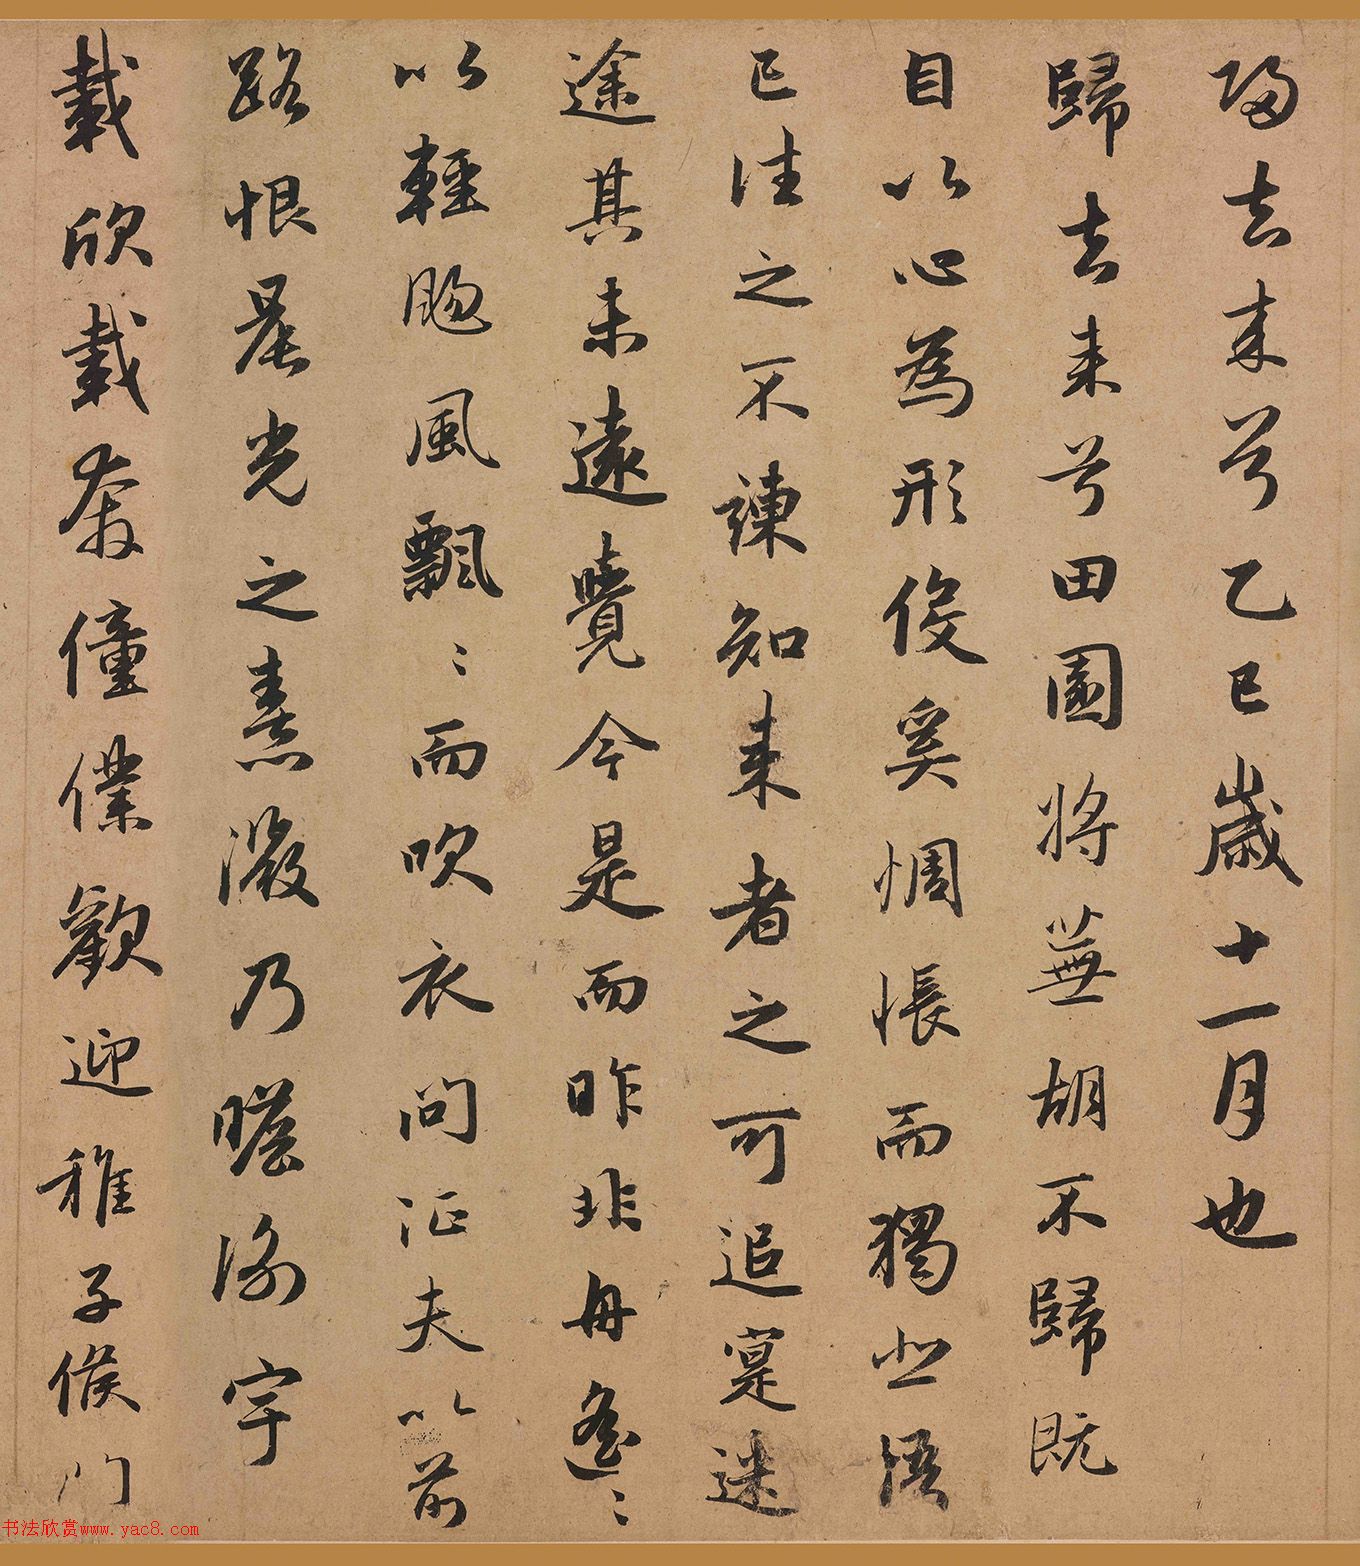 歸去来兮乙巳歲十一月也
歸去来兮田園將蕪胡不歸既
自以心為形役奚惆悵而獨悲悟
已往之不諫知来者之可追寔迷
途其未遠覺今是而昨非舟遙〻
以輕颺風飄〻而吹衣問征夫以前
路恨晨光之熹微乃瞻衡宇
載欣載奔僮僕歡迎稚子候門
书法欣赏www.yac8.com